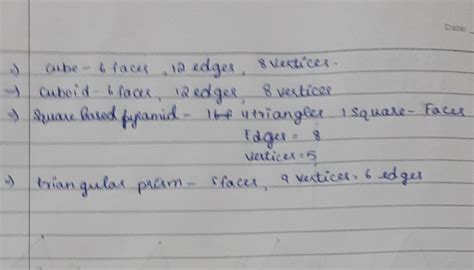 Date:
→) cube - 6 faces, 12 edges, 8 vertices.
→) cuboid - 6 faces, 12 edges, 8 vertices
→) Square based pyramid - 4 triangles 1 square - Faces
Edges = 8
vertices = 5
→) triangular prism - 5 faces, 9 vertices, 6 edges